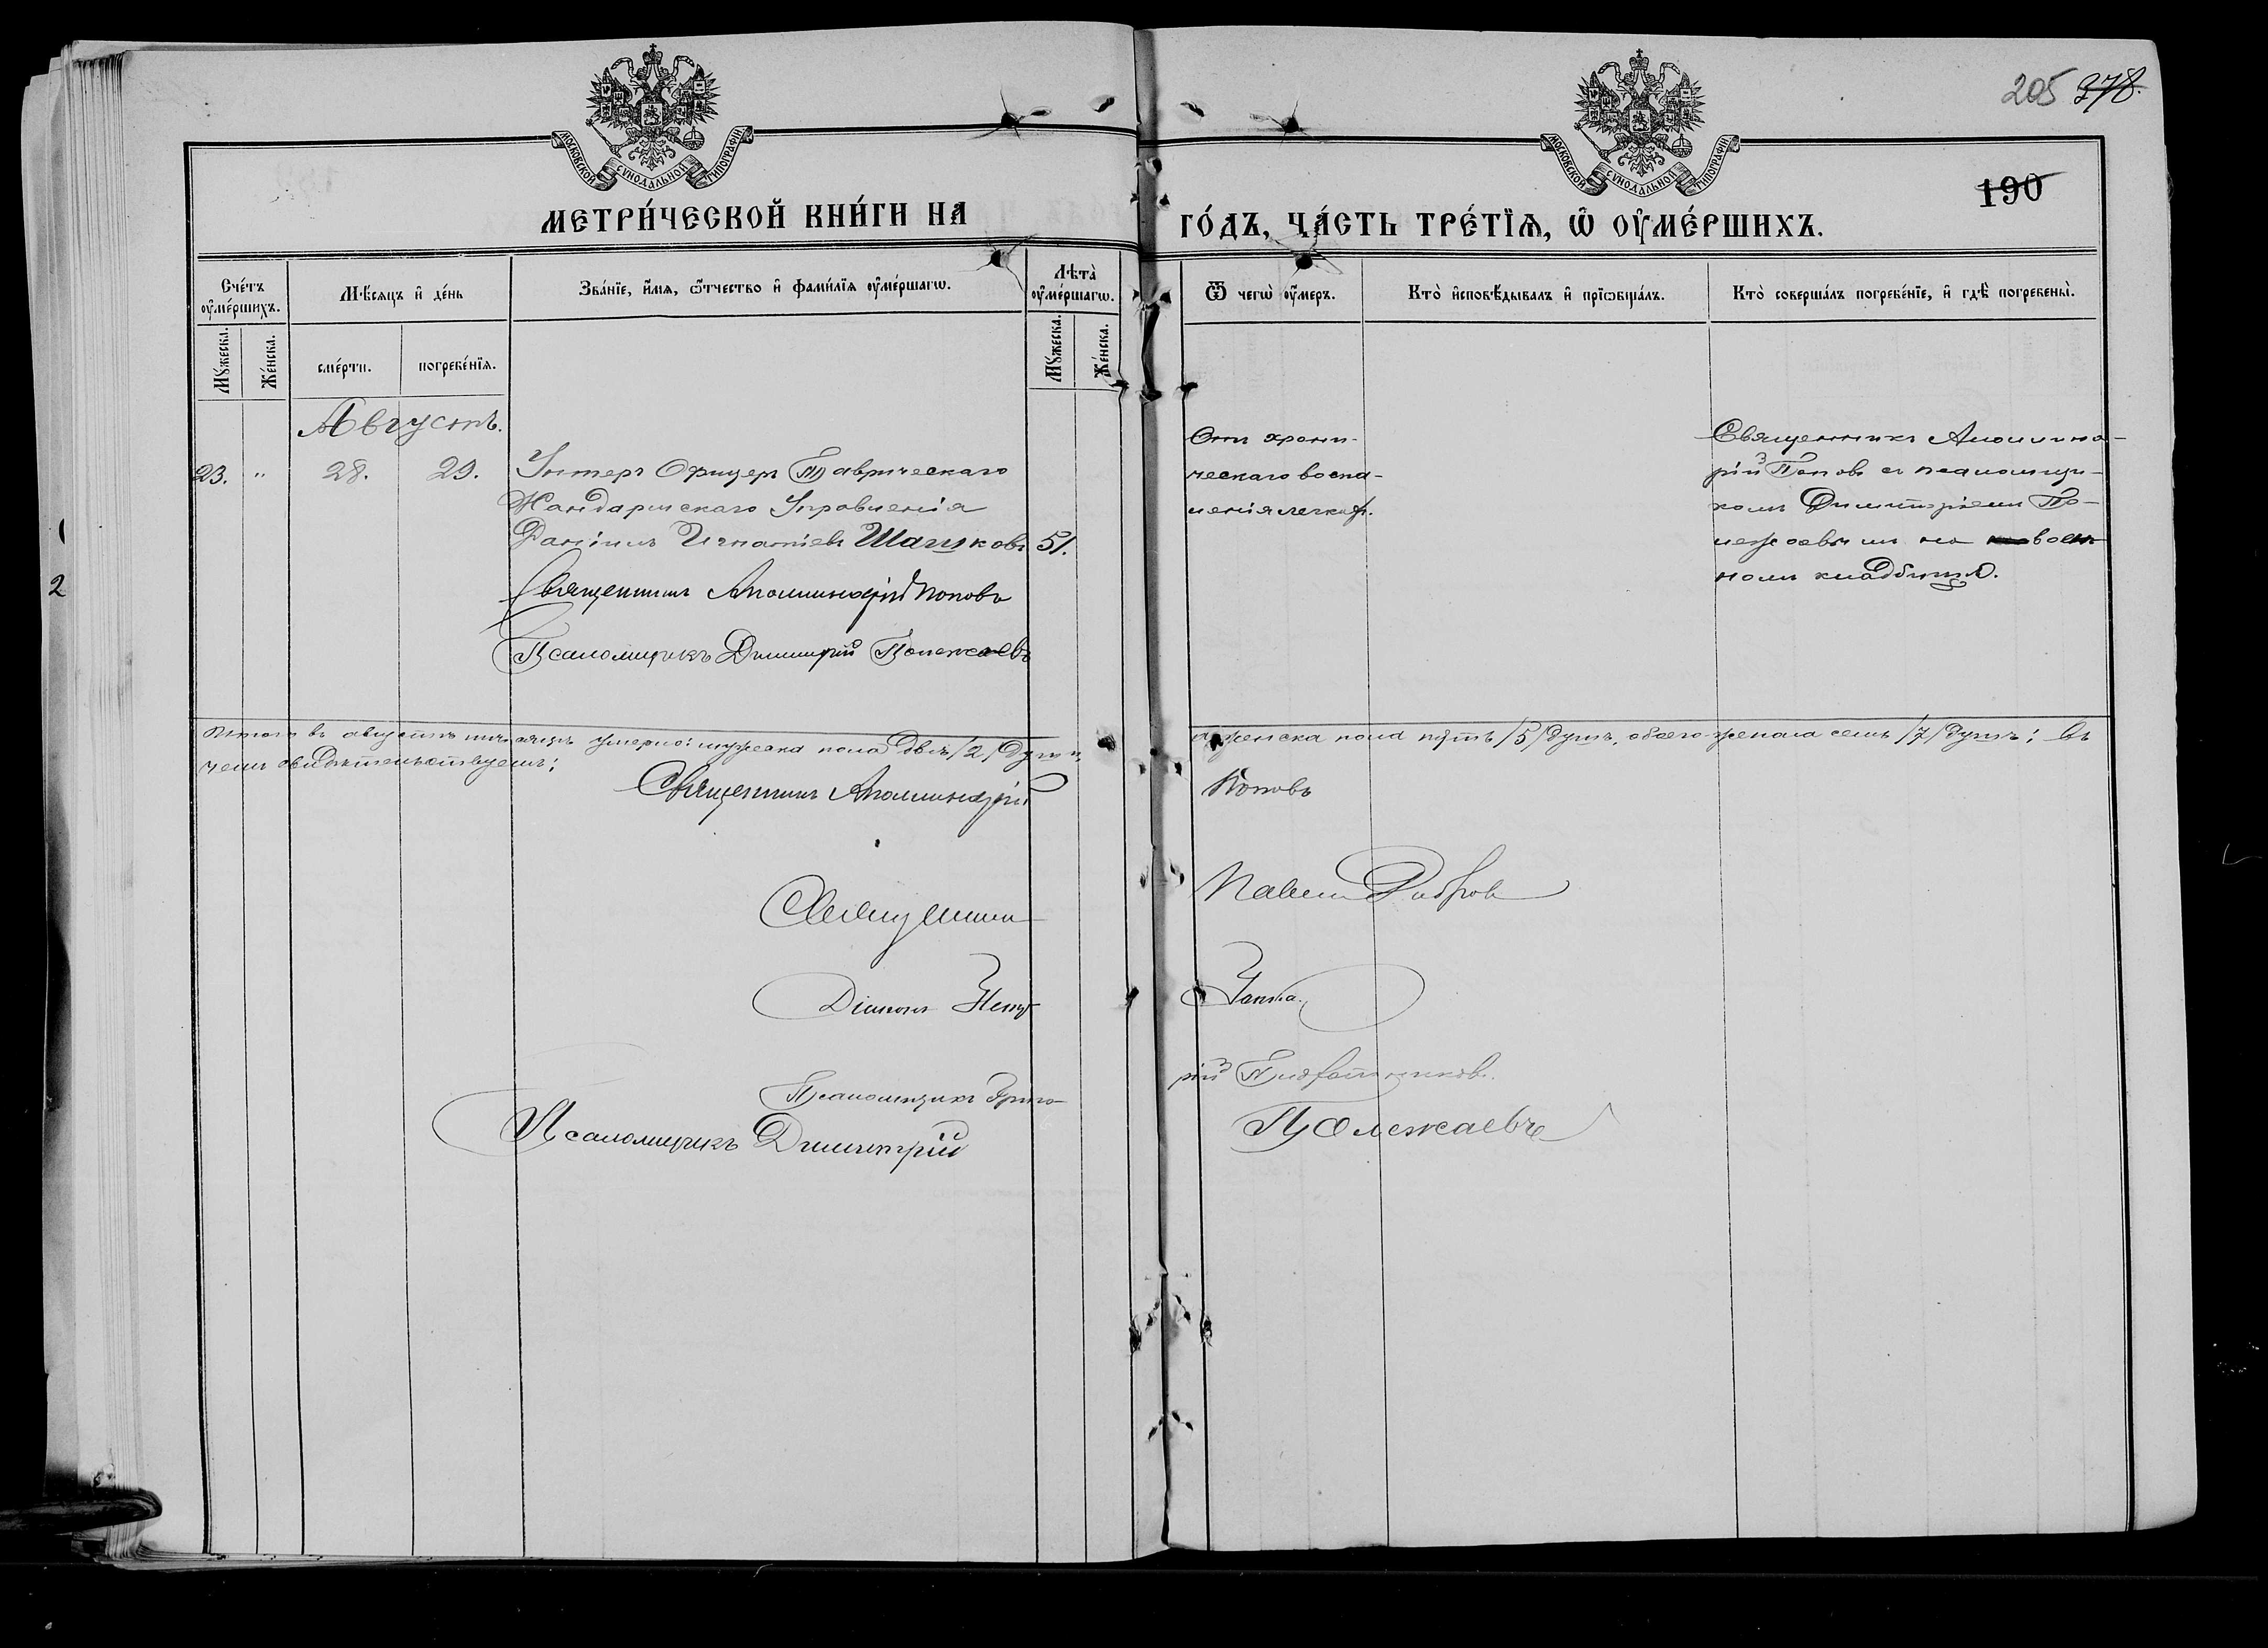 205 378.
190
МОСКОВСКОЙ СУНОДАЛЬНОЙ ТИПОГРАФІИ
МОСКОВСКОЙ СУНОДАЛЬНОЙ ТИПОГРАФІИ
МЕТРИ́ЧЕСКОЙ КНИ́ГИ НА
ГО́ДЪ, ЧА́СТЬ ТРЕ́ТЇѦ, Ѡ҆ ОУ҆МЕ́РШИХЪ.
Сче́тъ оу҆ме́ршихъ.
Мѣ́сяцъ и҆ де́нь
Зва́нїе, и҆́мя, ѻ҆́тчество и҆ фами́лїя оу҆ме́ршагѡ.
Лѣта̀ оу҆ме́ршагѡ.
Ѿ чегѡ̀ оу҆́меръ.
Кто̀ и҆сповѣ́дывалъ и҆ прїѡбща́лъ.
Кто̀ соверша́лъ погребе́нїе, и҆ гдѣ̀ погребены̀.
Мꙋ́жеска.
Же́нска.
сме́рти.
погребе́нїя.
Мꙋ́жеска.
Же́нска.
Августъ.
23. " 28. 29.
Унтеръ Офицеръ Таврическаго
Жандармскаго Управленія
Даніилъ Игнатіевъ Шашковъ 51.
Священникъ Аполлинарій Поповъ
Псаломщикъ Димитрій Полежаевъ
Отъ хрони-
ческаго воспа-
ленія легкихъ.
Священникъ Аполлина-
рій Поповъ съ псаломщи-
комъ Димитріемъ По-
лежаевымъ на воен-
номъ кладбищѣ.
Итого въ августѣ мѣсяцѣ умерло: мужеска пола двѣ /2/ души,
а женска пола пять /5/ душъ, обоего же пола семь /7/ душъ; въ
чемъ свидѣтельствуемъ:
Священникъ Аполлинарій Поповъ
Священникъ Павелъ
Діаконъ
Псаломщикъ Григо-
рій
Псаломщикъ Димитрій Полежаевъ
2